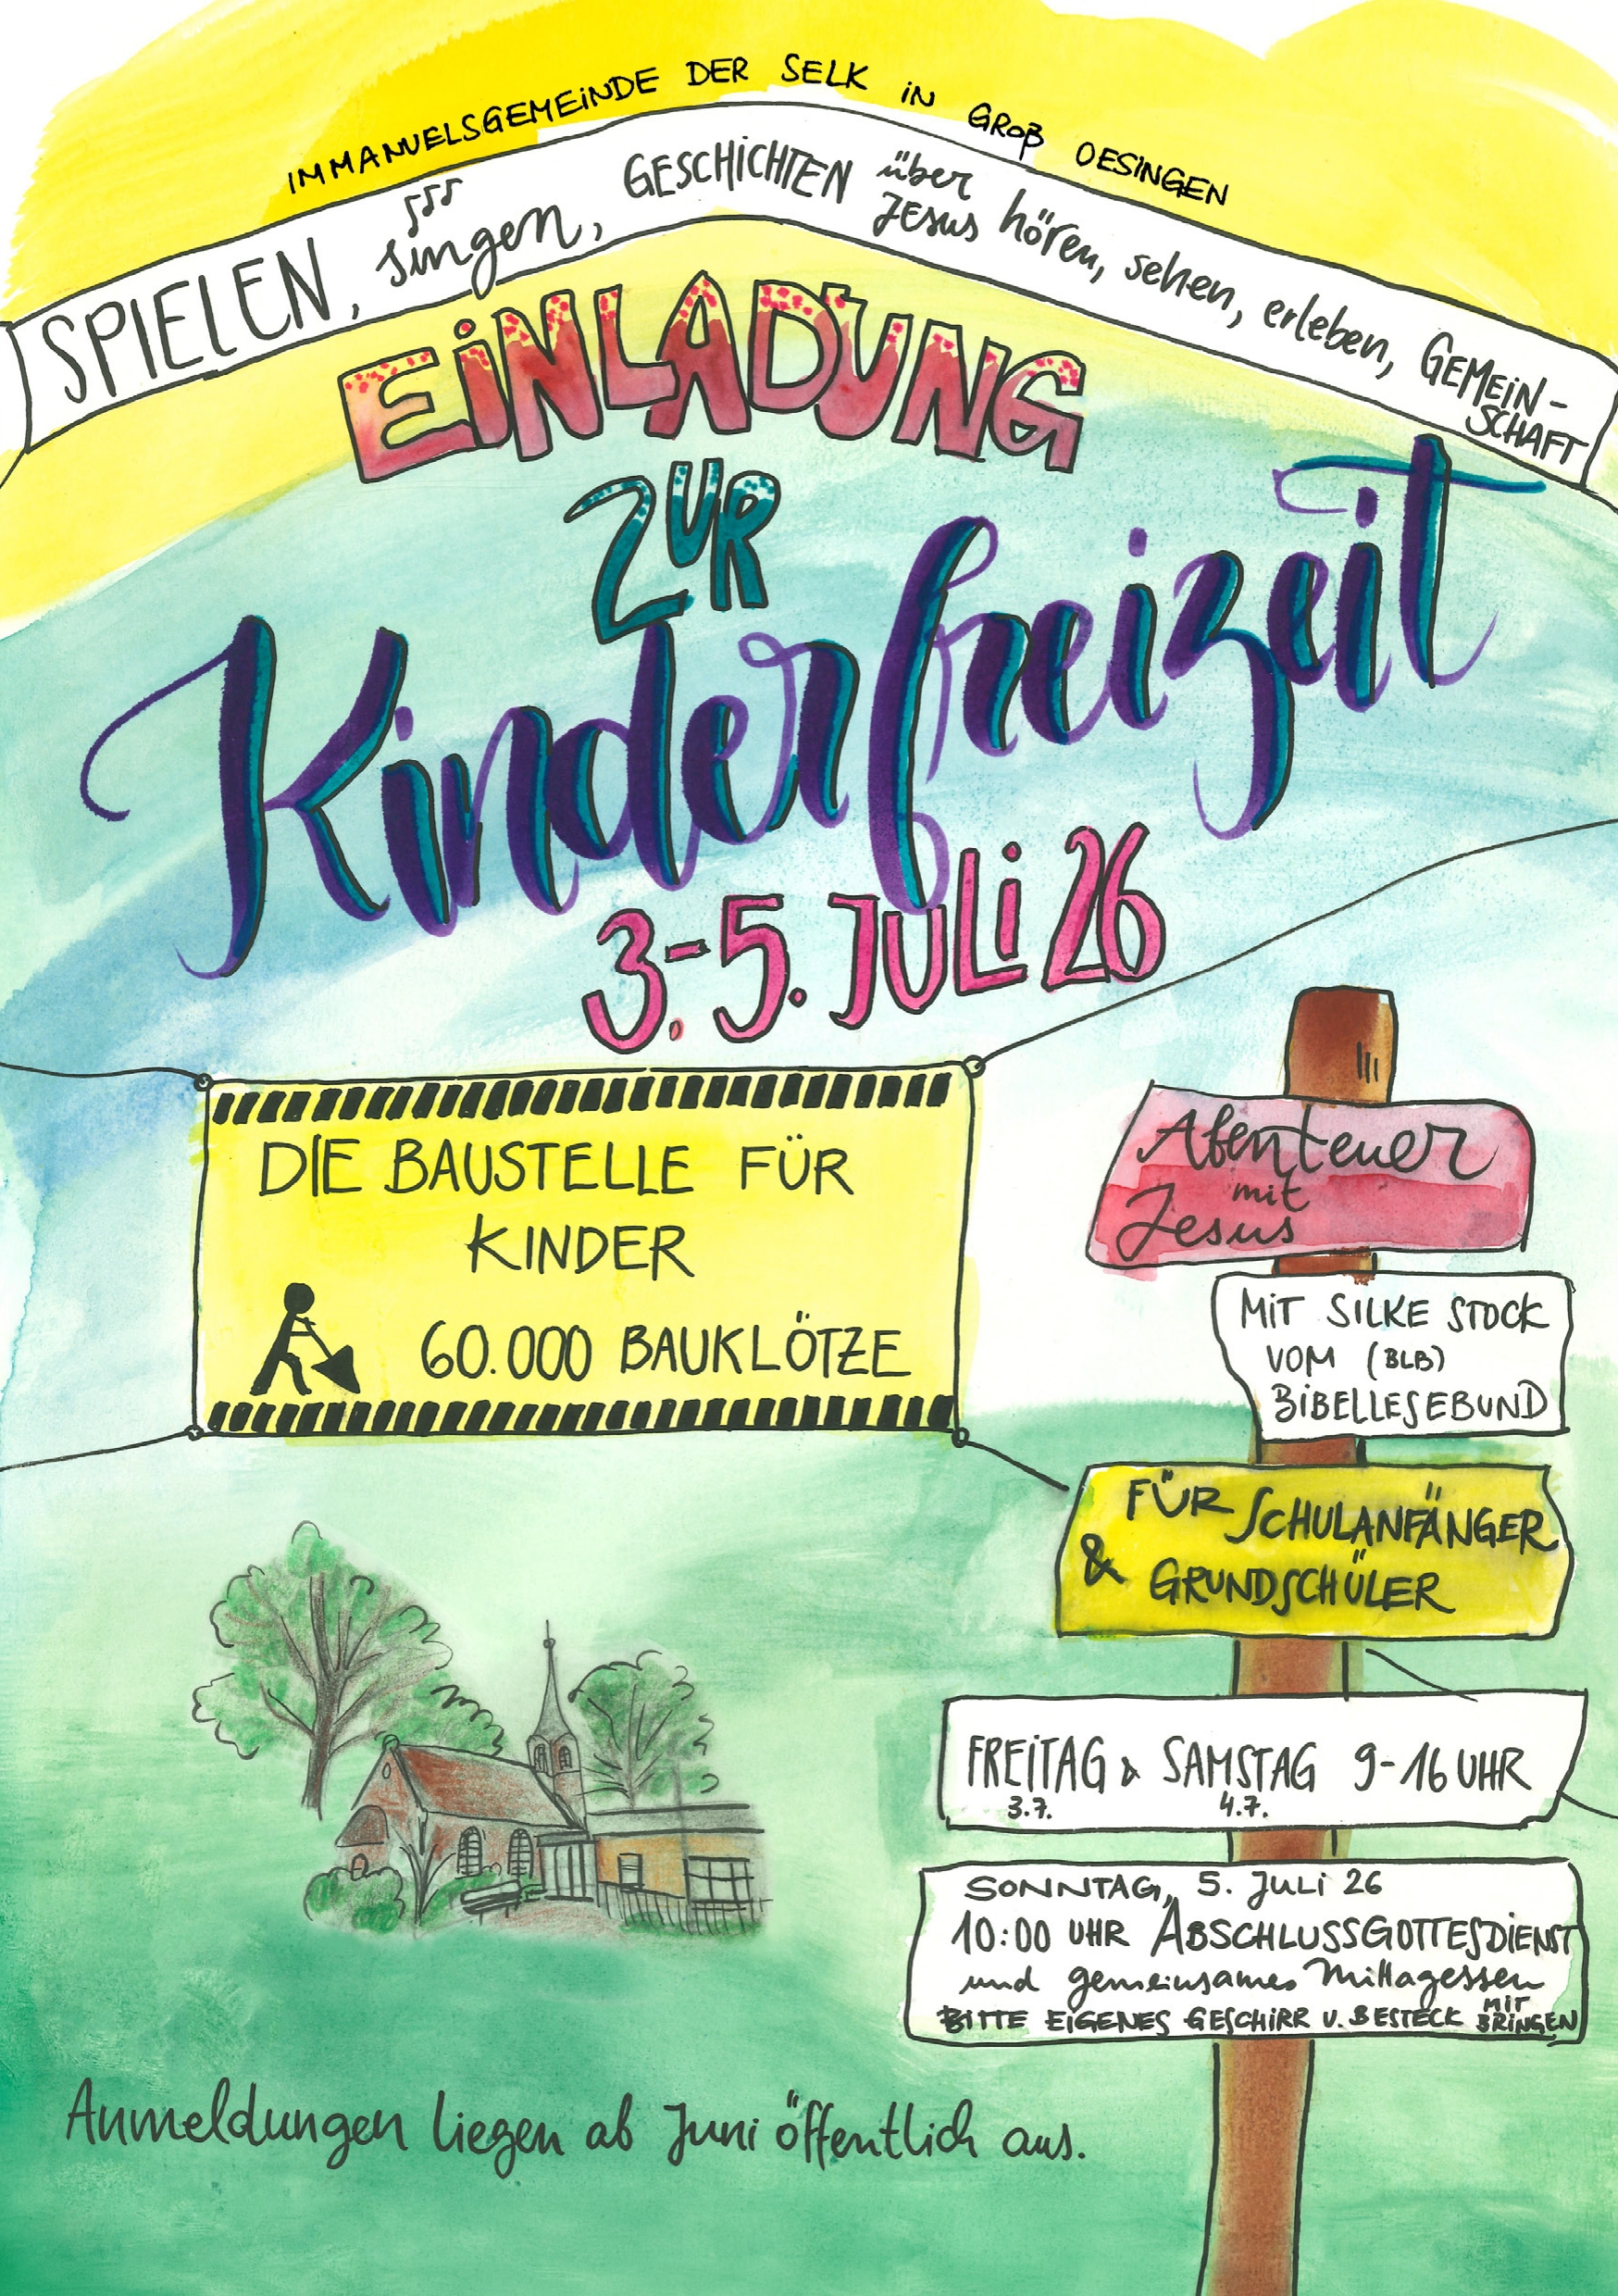 IMMANUELSGEMEINDE DER SELK IN GROß OESINGEN
SPIELEN, singen, GESCHICHTEN über Jesus hören, sehen, erleben, GEMEIN-
SCHAFT
EINLADUNG
ZUR
Kinderfreizeit
3.-5. JULI 26
DIE BAUSTELLE FÜR
KINDER
60.000 BAUKLÖTZE
Abenteuer
mit
Jesus
MIT SILKE STOCK
VOM (BLB)
BIBELLESEBUND
FÜR SCHULANFÄNGER
& GRUNDSCHÜLER
FREITAG & SAMSTAG 9-16 UHR
3.7. 4.7.
SONNTAG, 5. JULI 26
10:00 UHR ABSCHLUSSGOTTESDIENST
und gemeinsames Mittagessen
BITTE EIGENES GESCHIRR U. BESTECK MIT
BRINGEN
Anmeldungen liegen ab Juni öffentlich aus.